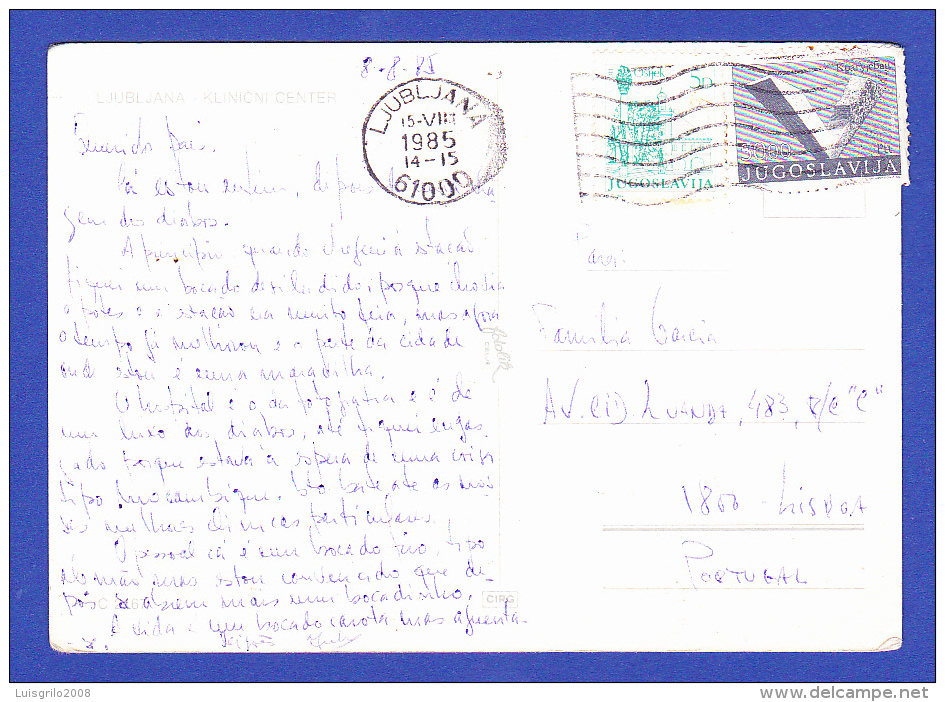 8-8-85
LJUBLJANA - KLINIČNI CENTER
LJUBLJANA
15-VIII
1985
14-15
61000
Osijek
JUGOSLAVIJA
JUGOSLAVIJA
Cá estou enfim, depois
gem dos diabos.
A princípio quando cheguei à estação
fiquei um bocado desiludido porque chovia
a potes e a estação era muito feia, mas agora
o tempo já melhorou e a parte da cidade
onde estou é uma maravilha.
O hospital é o da fotografia e é de
um luxo dos diabos, até fiquei engas
gado porque estava à espera de uma coisa
tipo Moçambique. Isto bate até as nos
sas melhores clínicas particulares.
O pessoal cá é um bocado frio, tipo
alemão mas estou convencido que de-
pois se abrem mais um bocadinho.
A vida é um bocado carota mas aguenta-
CIRG
Família Garcia
AV. CID. LUANDA, 483, R/C "C"
1800 - LISBOA
PORTUGAL
Luisgrilo2008
www.delcampe.net